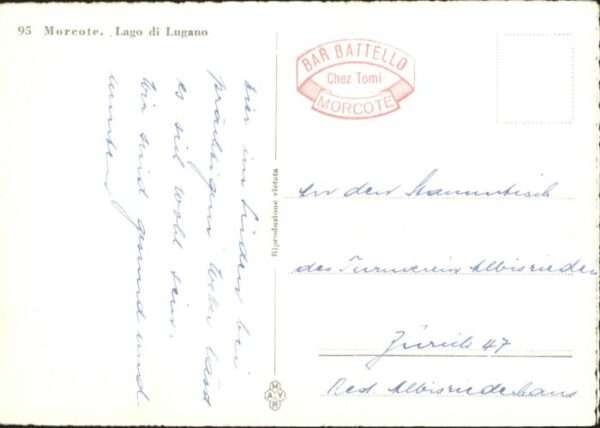 95 Morcote. Lago di Lugano
BAR BATTELLO
Chez Tomi
MORCOTE
Hier im Süden bei
prächtigem Wetter lässt
es sich wohl sein.
Wir sind gesund und
munter.
Riproduzione vietata
An den Stammtisch
des Turnverein Albisrieden
Zürich 47
Rest. Albisriederhaus